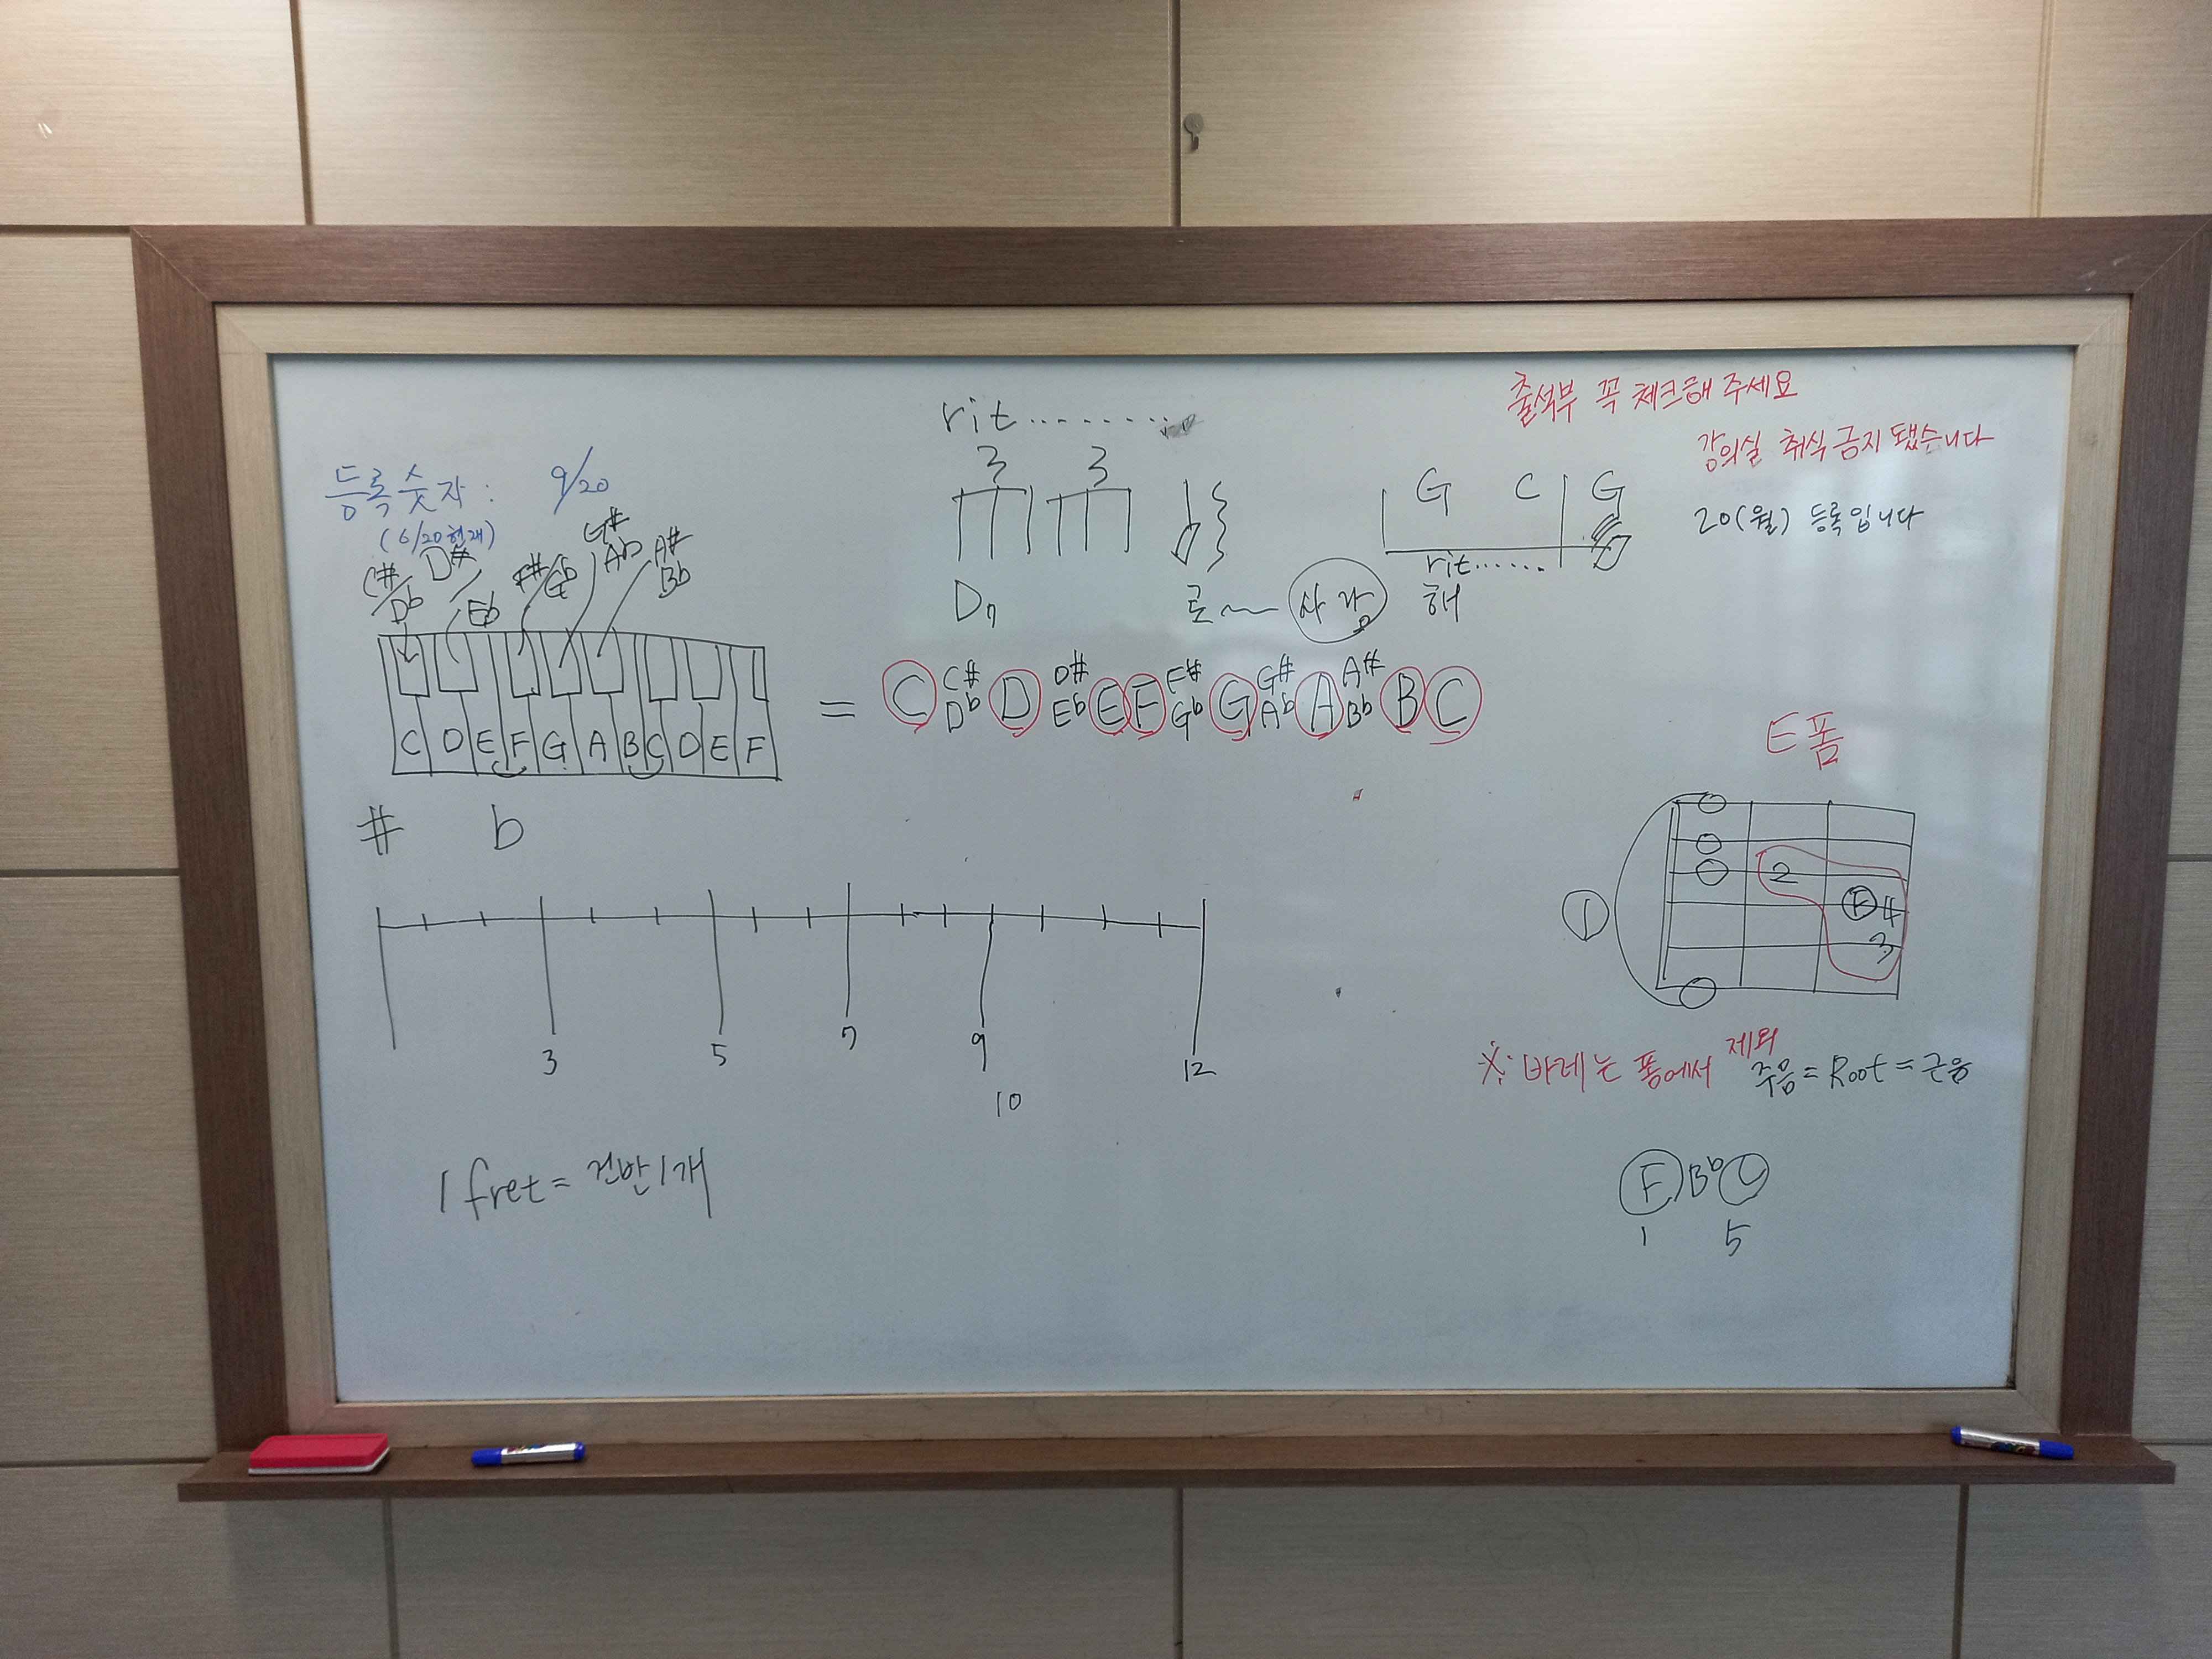 출석부 꼭 체크해 주세요
강의실 취식 금지 됐습니다
20(월) 등록입니다
등록숫자 : 9/20
(6/20현재)
rit..........
3 3
D7 로~ 사랑 해
G C G
rit......
C# D# F# G# A#
Db Eb Gb Ab Bb
C D E F G A B C D E F
=
C C# Db D D# Eb E F F# Gb G G# Ab A A# Bb B C
# b
3 5 7 9 12
10
1 fret = 건반 1개
E폼
1
2
F 4
3
※ 바레는 폼에서 제외
주음 = Root = 근음
F Bb C
1 5